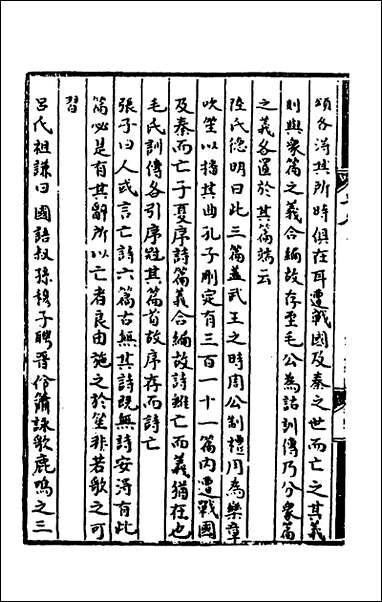 頌各得其所時俱在耳遭戰國及秦之世而亡之其義
則與衆篇之義合編故存至毛公為詁訓傳乃分衆篇
之義各置於其篇端云
陸氏德明曰此三篇盖武王之時周公制禮用為樂章
吹笙以播其曲孔子刪定有三百一十一篇內遭戰國
及秦而亡子夏序詩篇義合編故詩雖亡而義猶在也
毛氏訓傳各引序冠其篇首故序存而詩亡
張子曰人或言亡詩六篇古無其詩旣無詩安得有此
篇必是有其辭所以亡者良由施之於笙非若歌之可
習
呂氏祖謙曰國語叔孫穆子聘晉伶簫詠歌鹿鳴之三